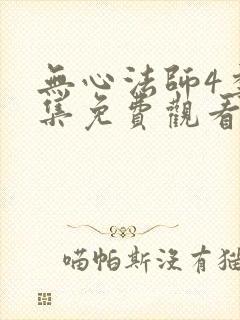 無心法師4
集免費觀看
喵帕斯沒有